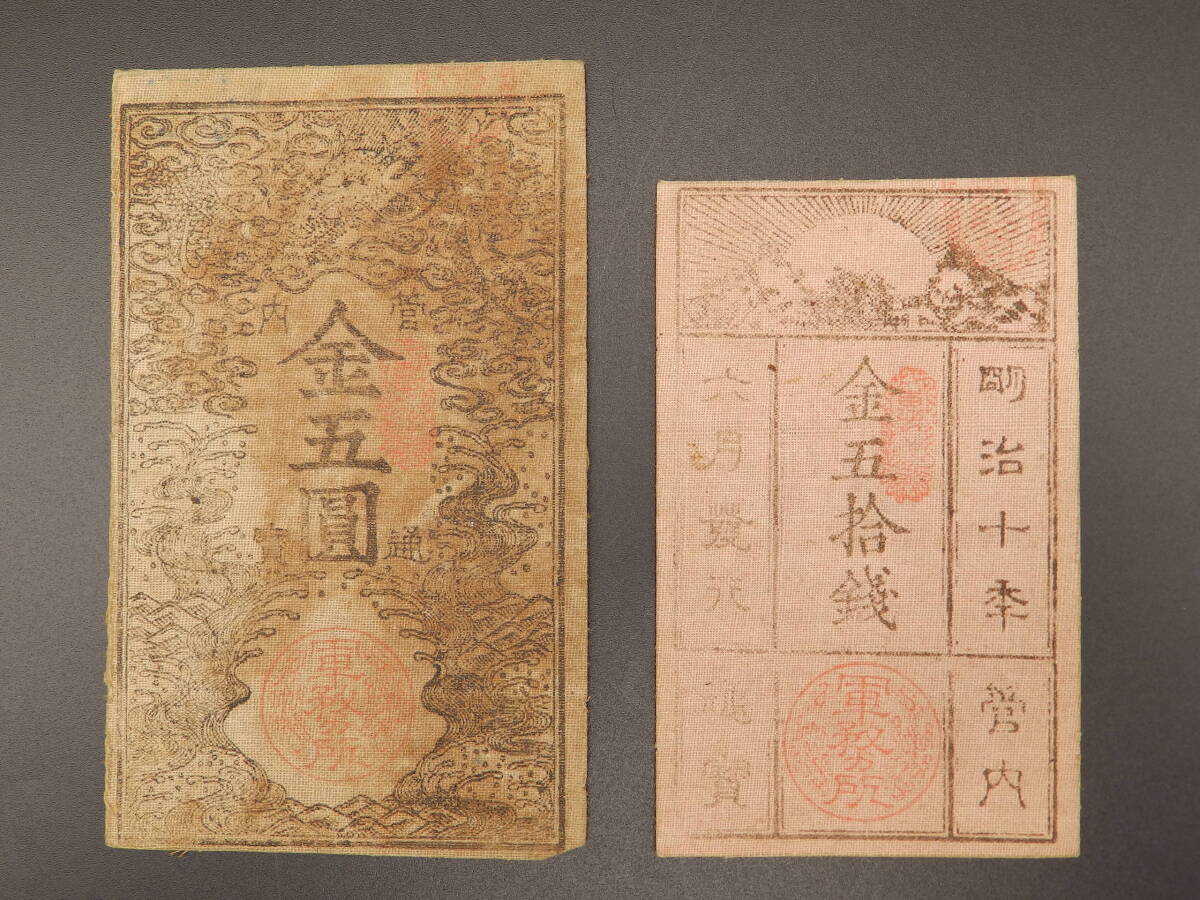 管内
通寳
金五圓
軍務所
明治十年
管内
金五拾錢
軍務所
六月發行
通寳